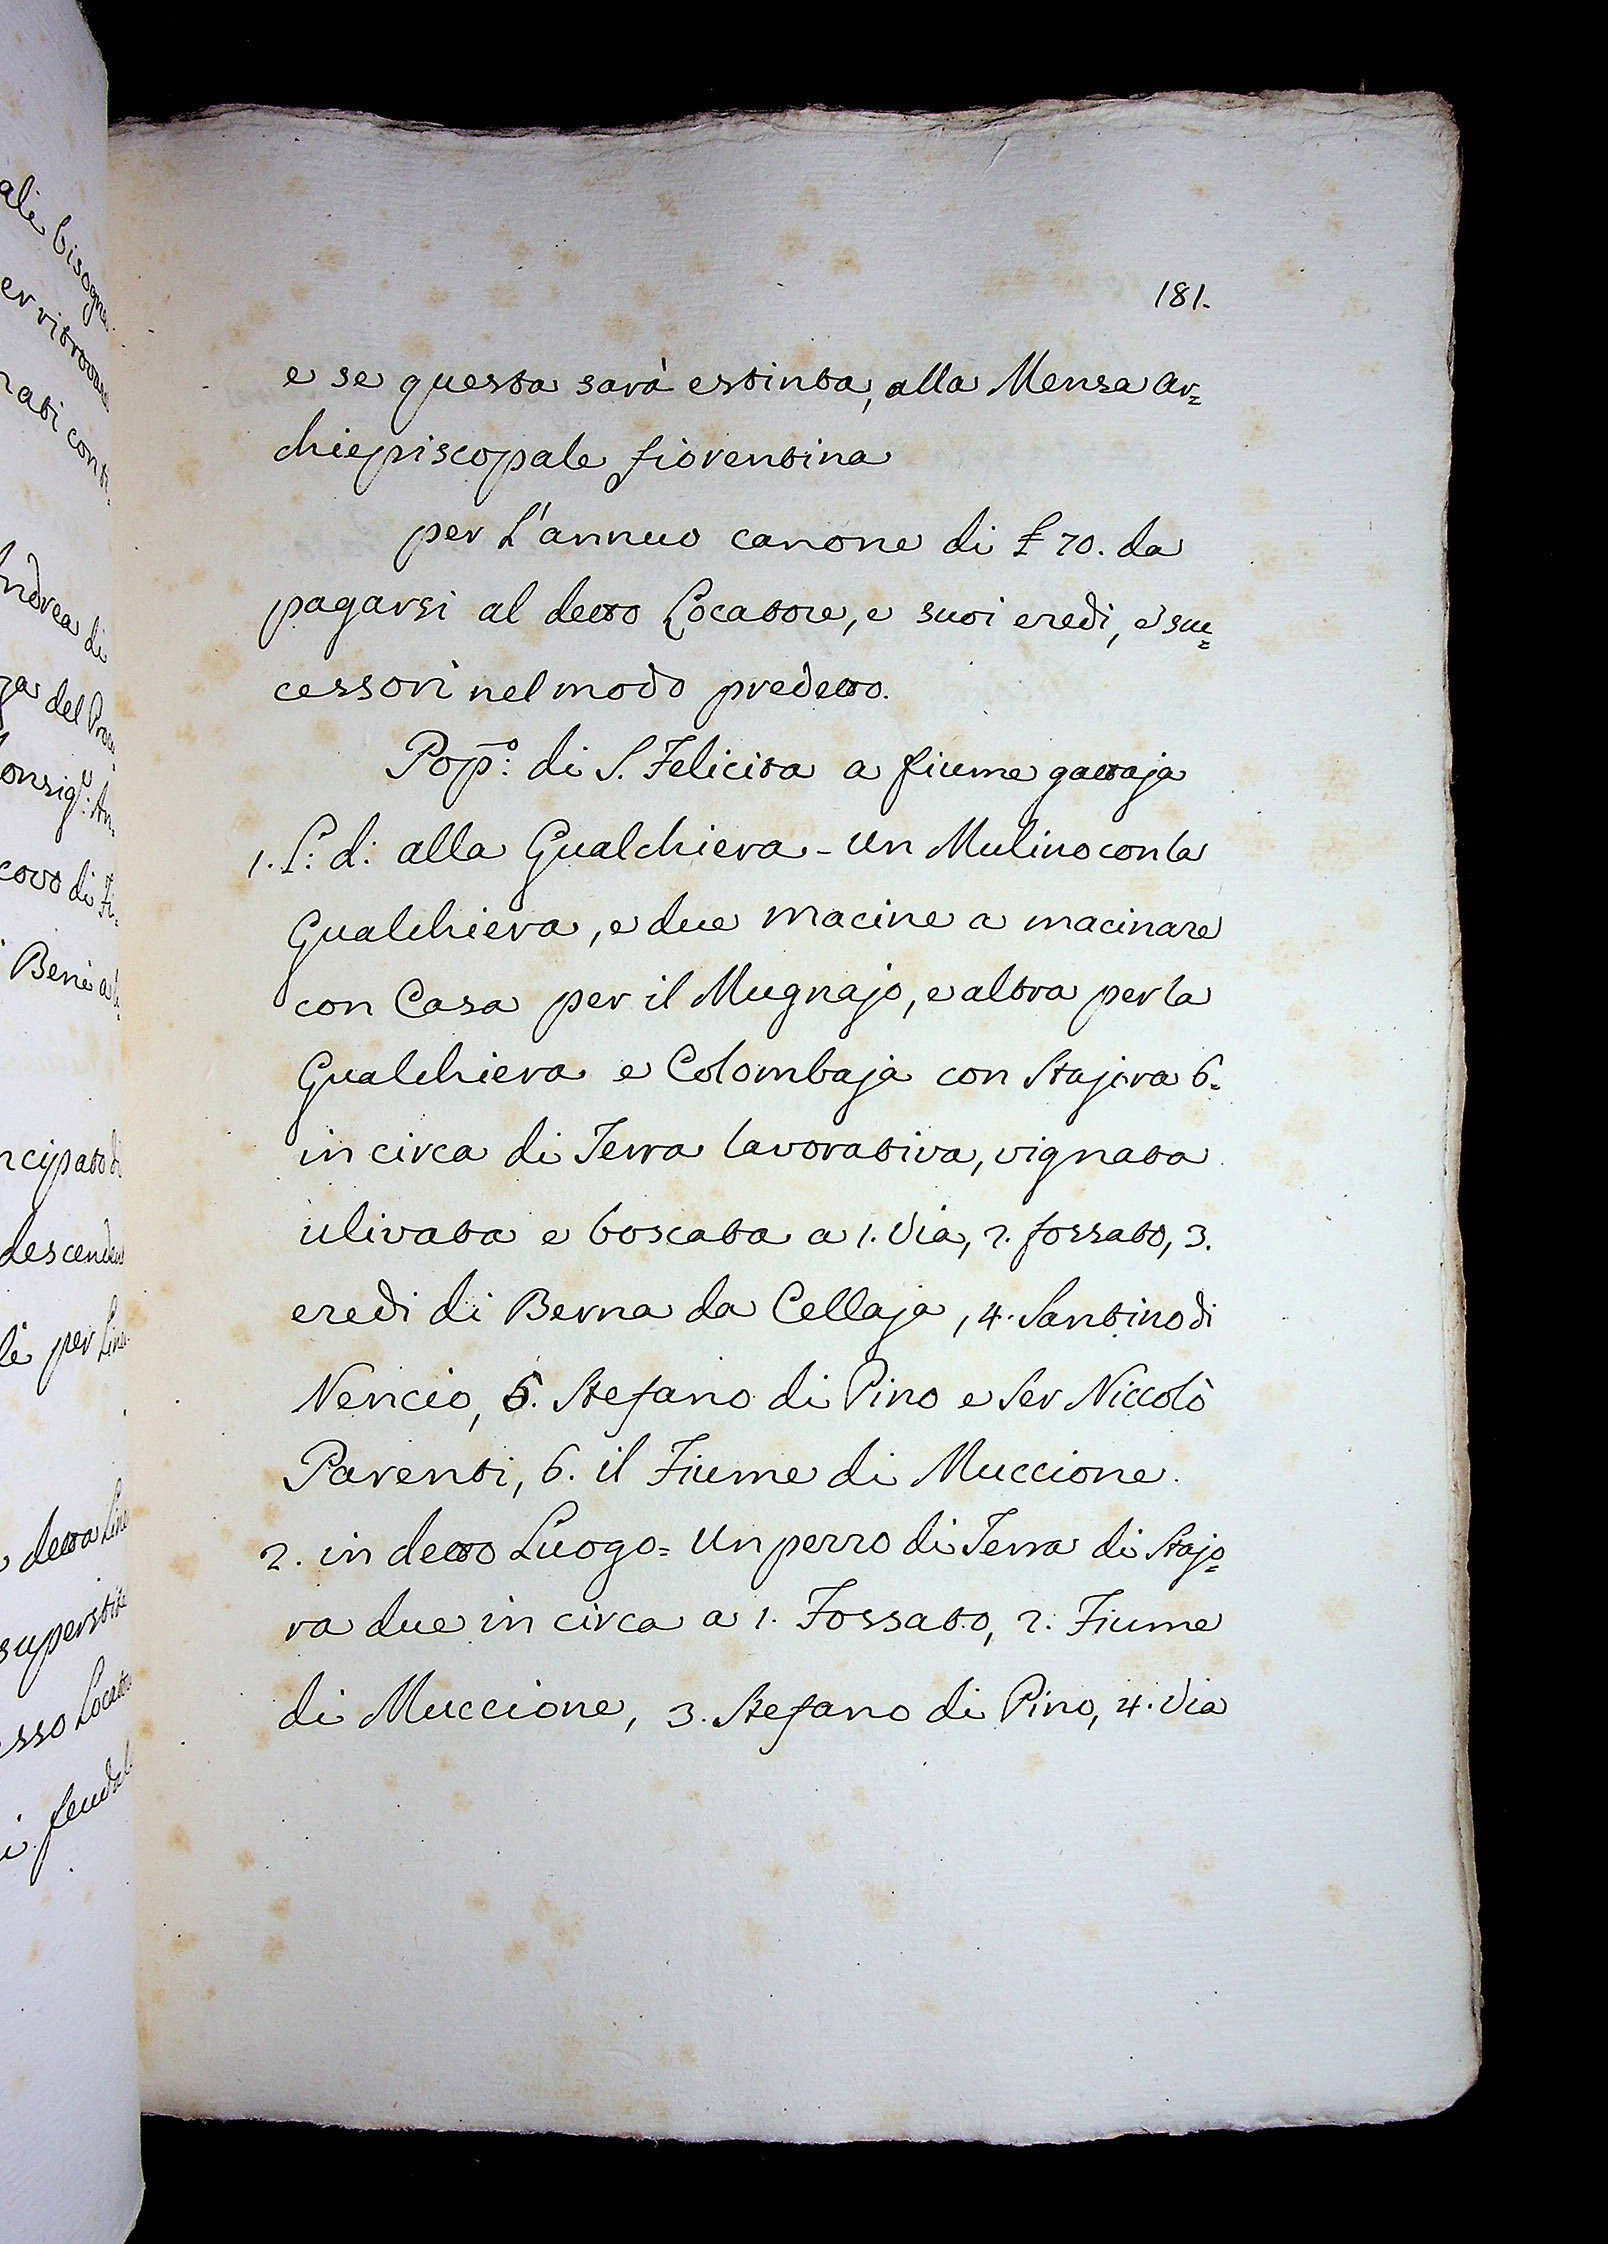 ali bisogna
er ritrovar
nati cont
Andrea di
za del Pro
onsig.r An
covo di Fi
i Beni a
ncipato di
descenden
li per Line
detta Line
superstite
esso Locato
i feudal
181.
e se questa sarà estinta, alla Mensa Ar=
chiepiscopale fiorentina
per L'annuo canone di £ 70. da
pagarsi al detto Locatore, e suoi eredi, e suc=
cessori nel modo predetto.
Pop.o: di S. Felicita a fiume gattaja
1. L: d: alla Gualchiera - Un Mulino con la
Gualchiera, e due macine a macinare
con Casa per il Mugnajo, e altra per la
Gualchiera e Colombaja con Stajora 6=
in circa di Terra lavorativa, vignata
ulivata e boscata a 1. Via, 2. fossato, 3.
eredi di Berna da Cellaja, 4. Santino di
Nencio, 5. Stefano di Pino e Ser Niccolò
Parenti, 6. il Fiume di Muccione.
2. in detto Luogo= Un pezzo di Terra di Stajo=
ra due in circa a 1. Fossato, 2. Fiume
di Muccione, 3. Stefano di Pino, 4. Via